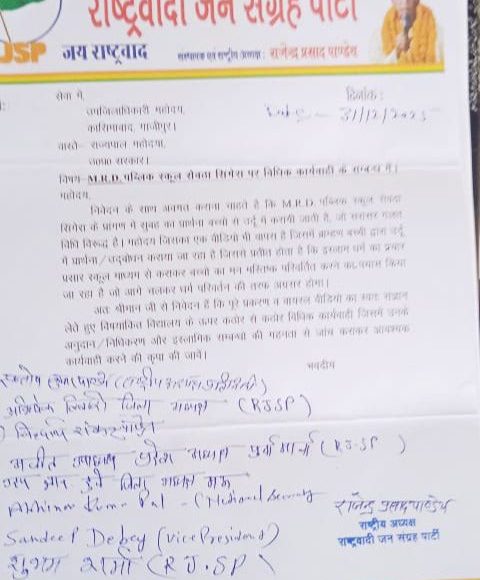 राष्ट्रवादी जन संग्रह पार्टी
JSP जय राष्ट्रवाद
संस्थापक एवं राष्ट्रीय अध्यक्ष : राजेन्द्र प्रसाद पाण्डेय
दिनांक :
सेवा में,
31/12/2025
उपजिलाधिकारी महोदय,
कासिमाबाद, गाजीपुर।
वास्ते- राज्यपाल महोदया,
उ०प्र० सरकार।
विषय- M.R.D. पब्लिक स्कूल सेवठा सिगेरा पर विधिक कार्यवाही के सम्बन्ध में।
महोदय,
निवेदन के साथ अवगत कराना चाहते है कि M.R.D. पब्लिक स्कूल सेवठा
सिगेरा के प्रांगण में सुबह का प्रार्थना बच्चो से उर्दू में करायी जाती है, जो सरासर गलत
विधि विरूद्ध है। महोदय जिसका एक वीडियो भी वायरल है जिसमें ब्राम्हण बच्ची द्वारा उर्दू
में प्रार्थना/उद्बोधन कराया जा रहा है जिससे प्रतीत होता है कि इस्लाम धर्म का प्रचार
प्रसार स्कूल माध्यम से कराकर बच्चो का मन मस्तिष्क परिवर्तित करने का प्रयास किया
जा रहा है जो आगे चलकर धर्म परिवर्तन की तरफ अग्रसर होगा।
अतः श्रीमान जी से निवेदन है कि पूरे प्रकरण व वायरल वीडियो का स्वतः संज्ञान
लेते हुए विषयांकित विद्यालय के ऊपर कठोर से कठोर विधिक कार्यवाही जिसमें उनके
अनुदान/निधिकरण और इस्लामिक सम्बन्धों की गहनता से जाँच कराकर आवश्यक
कार्यवाही करने की कृपा की जावें।
भवदीय
अभिषेक तिवारी जिला अध्यक्ष (RJSP)
(RJSP)
Abhinav Kumar Pal - (National Secretary
राजेन्द्र प्रसाद पाण्डेय
राष्ट्रीय अध्यक्ष
Sandeep Dubey (Vice President)
राष्ट्रवादी जन संग्रह पार्टी
शुभम शर्मा (RJ.SP)